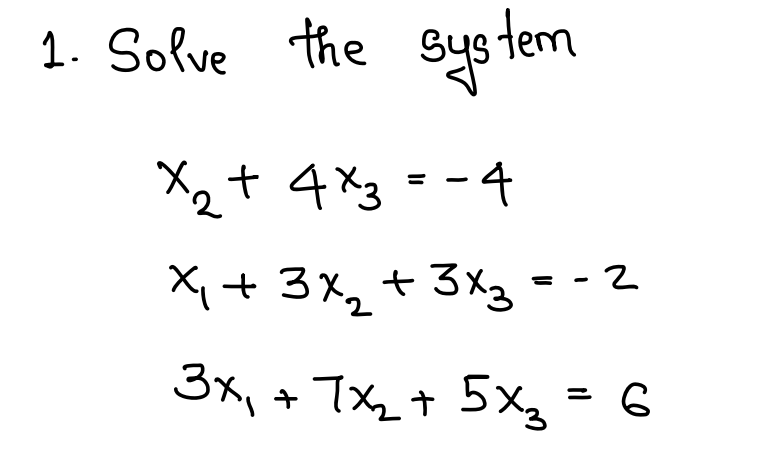 1. Solve the system
x₂ + 4x₃ = -4
x₁ + 3x₂ + 3x₃ = -2
3x₁ + 7x₂ + 5x₃ = 6